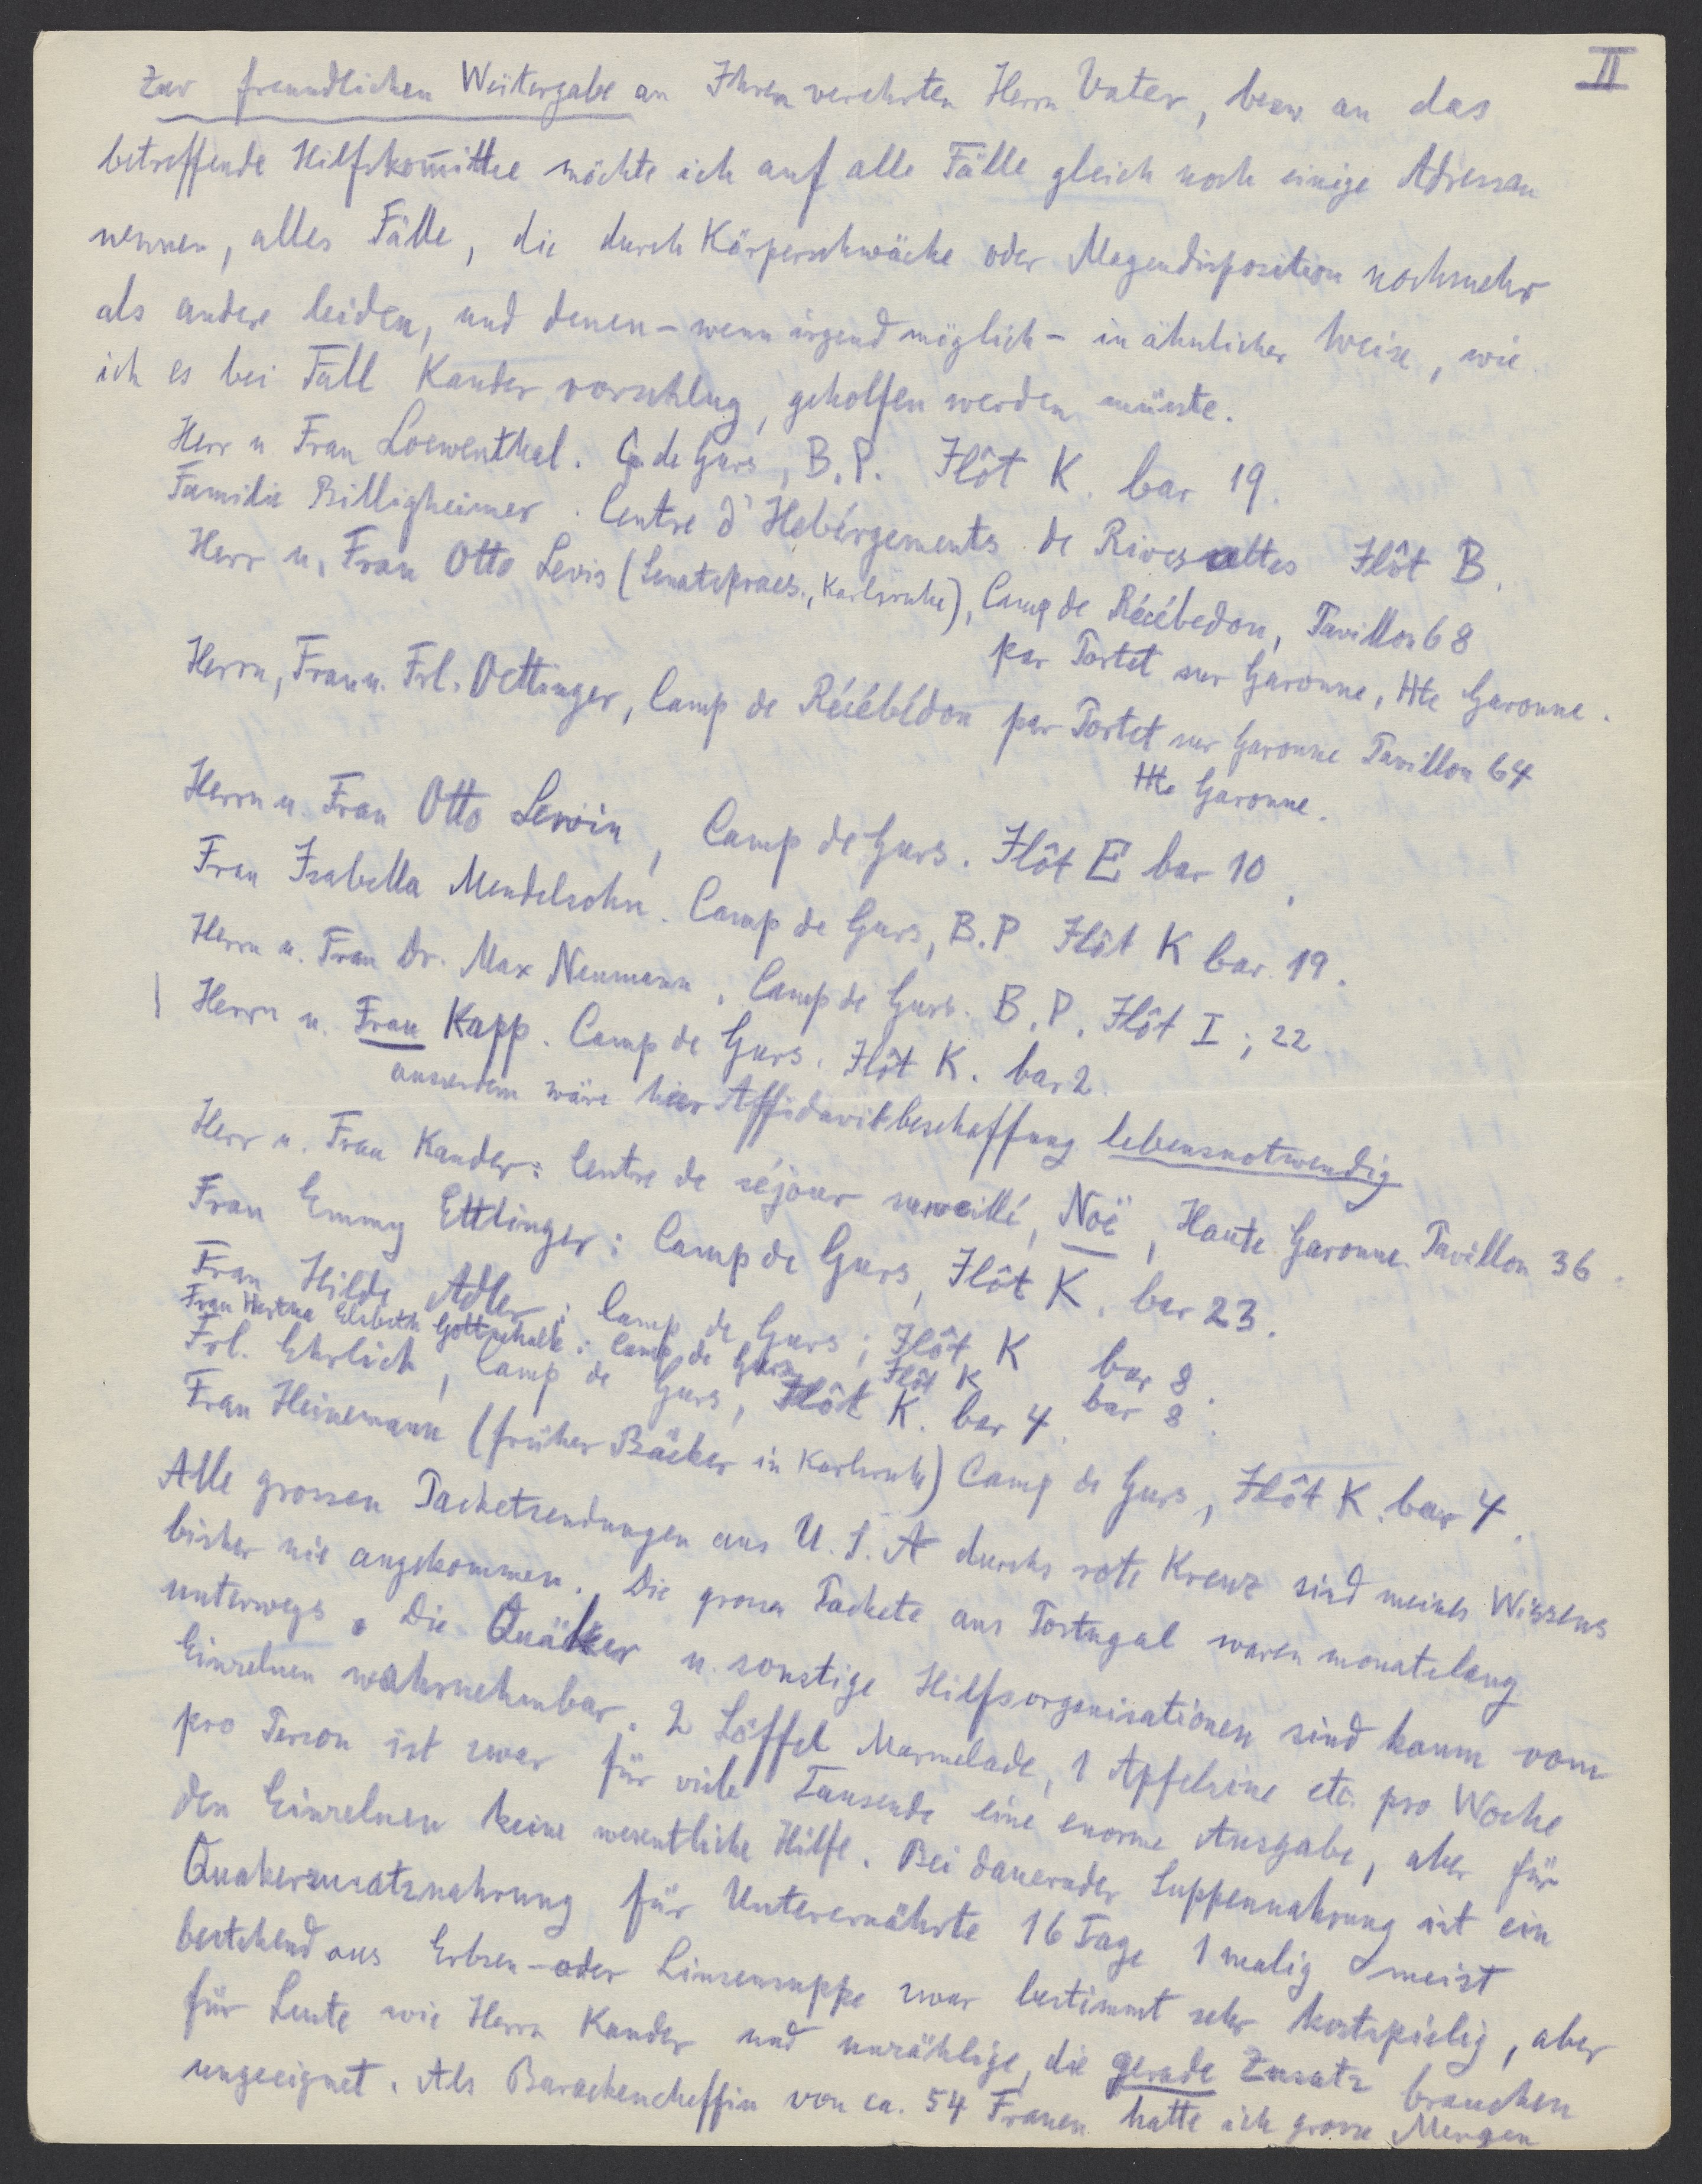 II
Zur freundlichen Weitergabe an Ihren verehrten Herrn Vater, bezw an das
betreffende Hilfskomittee möchte ich auf alle Fälle gleich noch einige Adressen
nennen, alles Fälle, die durch Körperschwäche oder Magendisposition nochmehr
als andere leiden, und denen – wenn irgend möglich – in ähnlicher Weise, wie
ich es bei Fall Kander vorschlug, geholfen werden müsste.
Herr u Frau Loewenthal. C. de Gurs, B.P. Ilôt K. bar 19.
Familie Billigheimer. Centre d'Hebérgements de Rivesaltes Ilôt B.
Herr u. Frau Otto Levis (Senatspraes., Karlsruhe), Camp de Récébedon, Pavillon 68
par Portet sur Garonne, Hte Garonne.
Herrn, Frau u. Frl. Oettinger, Camp de Récébédon par Portet sur Garonne Pavillon 64
Hte Garonne.
Herrn u. Frau Otto Lewin, Camp de Gurs. Ilôt E bar 10.
Frau Isabella Mendelsohn. Camp de Gurs, B.P Ilôt K bar. 19.
Herrn u. Frau Dr. Max Neumann. Camp de Gurs. B.P. Ilôt I; 22
Herrn u. Frau Kapp. Camp de Gurs. Ilôt K. bar 2.
ausserdem wäre hier Affidavitbeschaffung lebensnotwendig
Herr u. Frau Kander: Centre de séjour surveillé, Noë, Haute Garonne. Pavillon 36.
Frau Emmy Ettlinger: Camp de Gurs, Ilôt K. bar 23.
Frau Hilde Adler: Camp de Gurs; Ilôt K bar 8.
Frau Hertha Elsbeth Gottschalk: Camp de Gurs Ilôt K bar 8.
Frl. Ehrlich, Camp de Gurs, Ilôt K. bar 4.
Frau Heinemann (früher Bäcker in Karlsruhe) Camp de Gurs, Ilôt K. bar 4.
Alle grossen Packetsendungen aus U.S.A durchs rote Kreuz sind meines Wissens
bisher nie angekommen. Die grossen Packete aus Portugal waren monatelang
unterwegs. Die Quäker u. sonstige Hilfsorganisationen sind kaum vom
Einzelnen wahrnehmbar. 2 Löffel Marmelade, 1 Apfelsine etc. pro Woche
pro Person ist zwar für viele Tausende eine enorme Ausgabe, aber für
den Einzelnen keine wesentliche Hilfe. Bei dauernder Suppennahrung ist ein
Quakerzusatznahrung für Unterernährte 16 Tage 1 malig meist
bestehend aus Erbsen- oder Linsensuppe zwar bestimmt sehr kostspielig, aber
für Leute wie Herrn Kander und unzählige, die gerade Zusatz brauchen
ungeeignet. Als Barackencheffin von ca. 54 Frauen hatte ich grosse Mengen